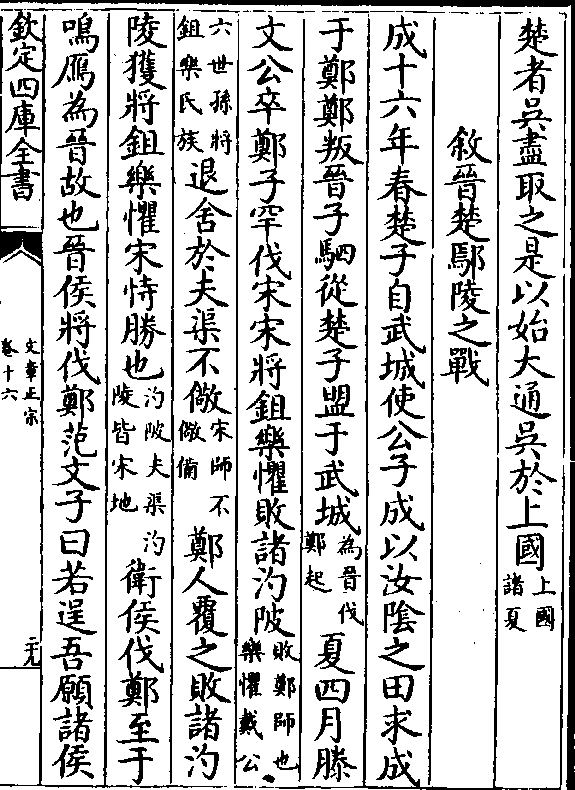 楚者吳盡取之是以始大通吳於上國上國諸夏
敘晉楚鄢陵之戰
成十六年春楚子自武城使公子成以汝隂之田求成
于鄭鄭叛晉子駟從楚子盟于武城為晉伐鄭起夏四月滕
文公卒鄭子罕伐宋宋將鉏樂懼敗諸汋陂敗鄭師也樂懼戴公
六世孫將鉏樂氏族退舍於夫渠不儆宋師不儆備鄭人覆之敗諸汋
陵獲將鉏樂懼宋恃勝也汋陂夫渠汋陵皆宋地衛侯伐鄭至于
鳴鴈為晉故也晉侯將伐鄭范文子曰若逞吾願諸侯
欽定四庫全書
文章正宗
卷十六
二九